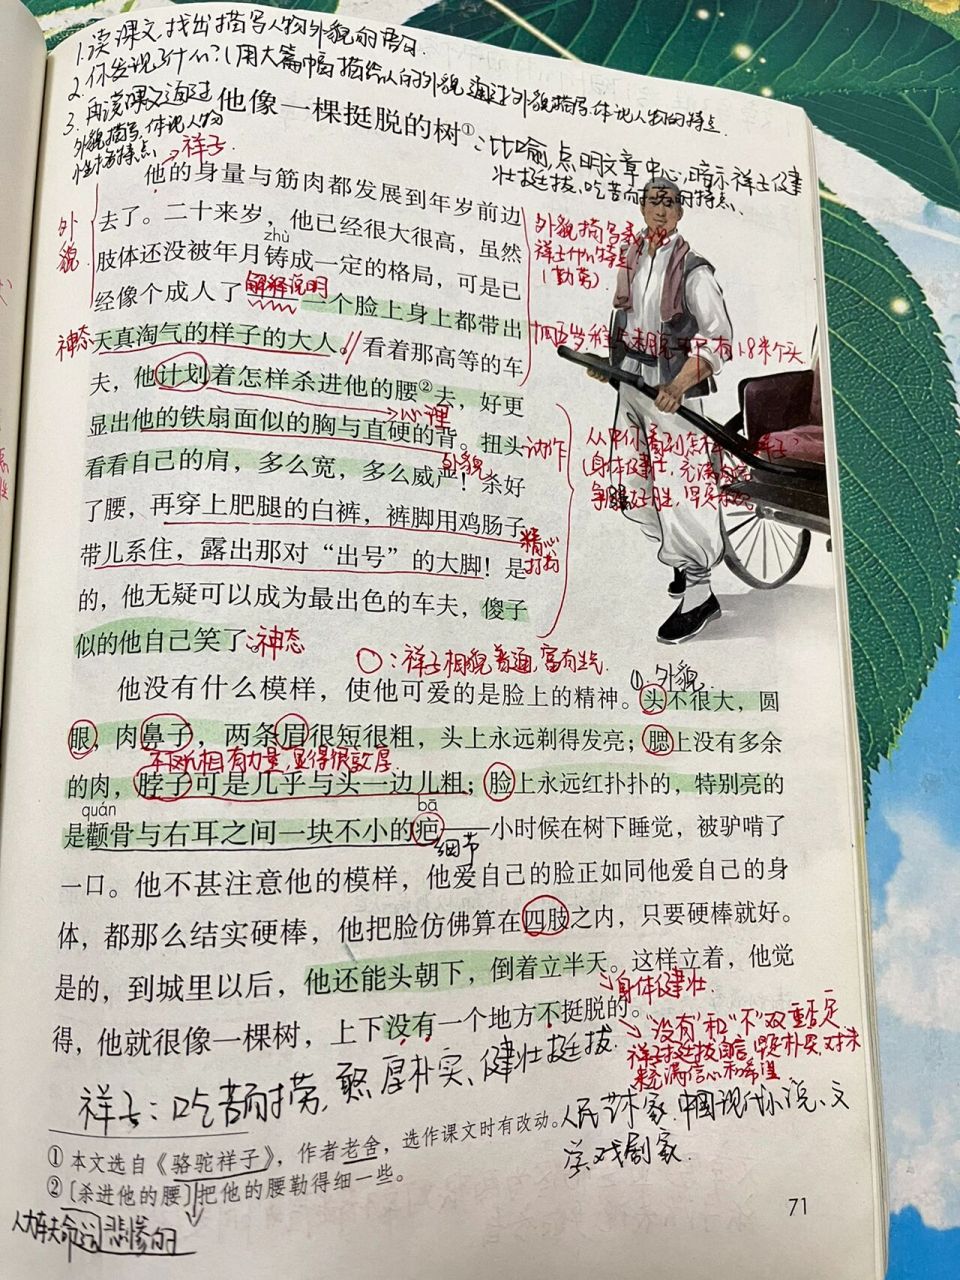 1.读课文,找出描写人物外貌的语句.
2.你发现了什么?(用大篇幅描绘人的外貌,通过外貌描写,体现人物的特点.
3.再读课文,通过
外貌描写,体现人物
性格的特点
他像一棵挺脱的树①
:比喻,点明文章中心,暗示祥子健
壮挺拔、吃苦耐劳的特点、
→祥子
他的身量与筋肉都发展到年岁前边
外貌
去了。二十来岁,他已经很大很高,虽然
zhù
肢体还没被年月铸成一定的格局,可是已
经像个成人了——一个脸上身上都带出
解释说明
外貌描写表现
祥子什么特点
(勤劳)
神态
天真淘气的样子的大人。看着那高等的车
夫,他计划着怎样杀进他的腰②去,好更
→心理
显出他的铁扇面似的胸与直硬的背。扭头
动作
看看自己的肩,多么宽,多么威严!杀好
外貌
了腰,再穿上肥腿的白裤,裤脚用鸡肠子
带儿系住,露出那对“出号”的大脚!是
精心
打扮
的,他无疑可以成为最出色的车夫,傻子
似的他自己笑了。
:神态
○:祥子相貌普通,富有生气
①外貌
他没有什么模样,使他可爱的是脸上的精神。头不很大,圆
眼,肉鼻子,两条眉很短很粗,头上永远剃得发亮;腮上没有多余
的肉,脖子可是几乎与头一边儿粗;脸上永远红扑扑的,特别亮的
quán
bā
是颧骨与右耳之间一块不小的疤——小时候在树下睡觉,被驴啃了
细节
一口。他不甚注意他的模样,他爱自己的脸正如同他爱自己的身
体,都那么结实硬棒,他把脸仿佛算在四肢之内,只要硬棒就好。
是的,到城里以后,他还能头朝下,倒着立半天。这样立着,他觉
:身体健壮
得,他就很像一棵树,上下没有一个地方不挺脱的。
→“没有”和“不”双重否定
祥子挺拔自信、坚定朴实、对未
来充满信心和希望
祥子:吃苦耐劳,憨厚朴实、健壮挺拔
①本文选自《骆驼祥子》,作者老舍,选作课文时有改动。
人民艺术家、中国现代小说、文
学戏剧家.
②[杀进他的腰]把他的腰勒得细一些。
71